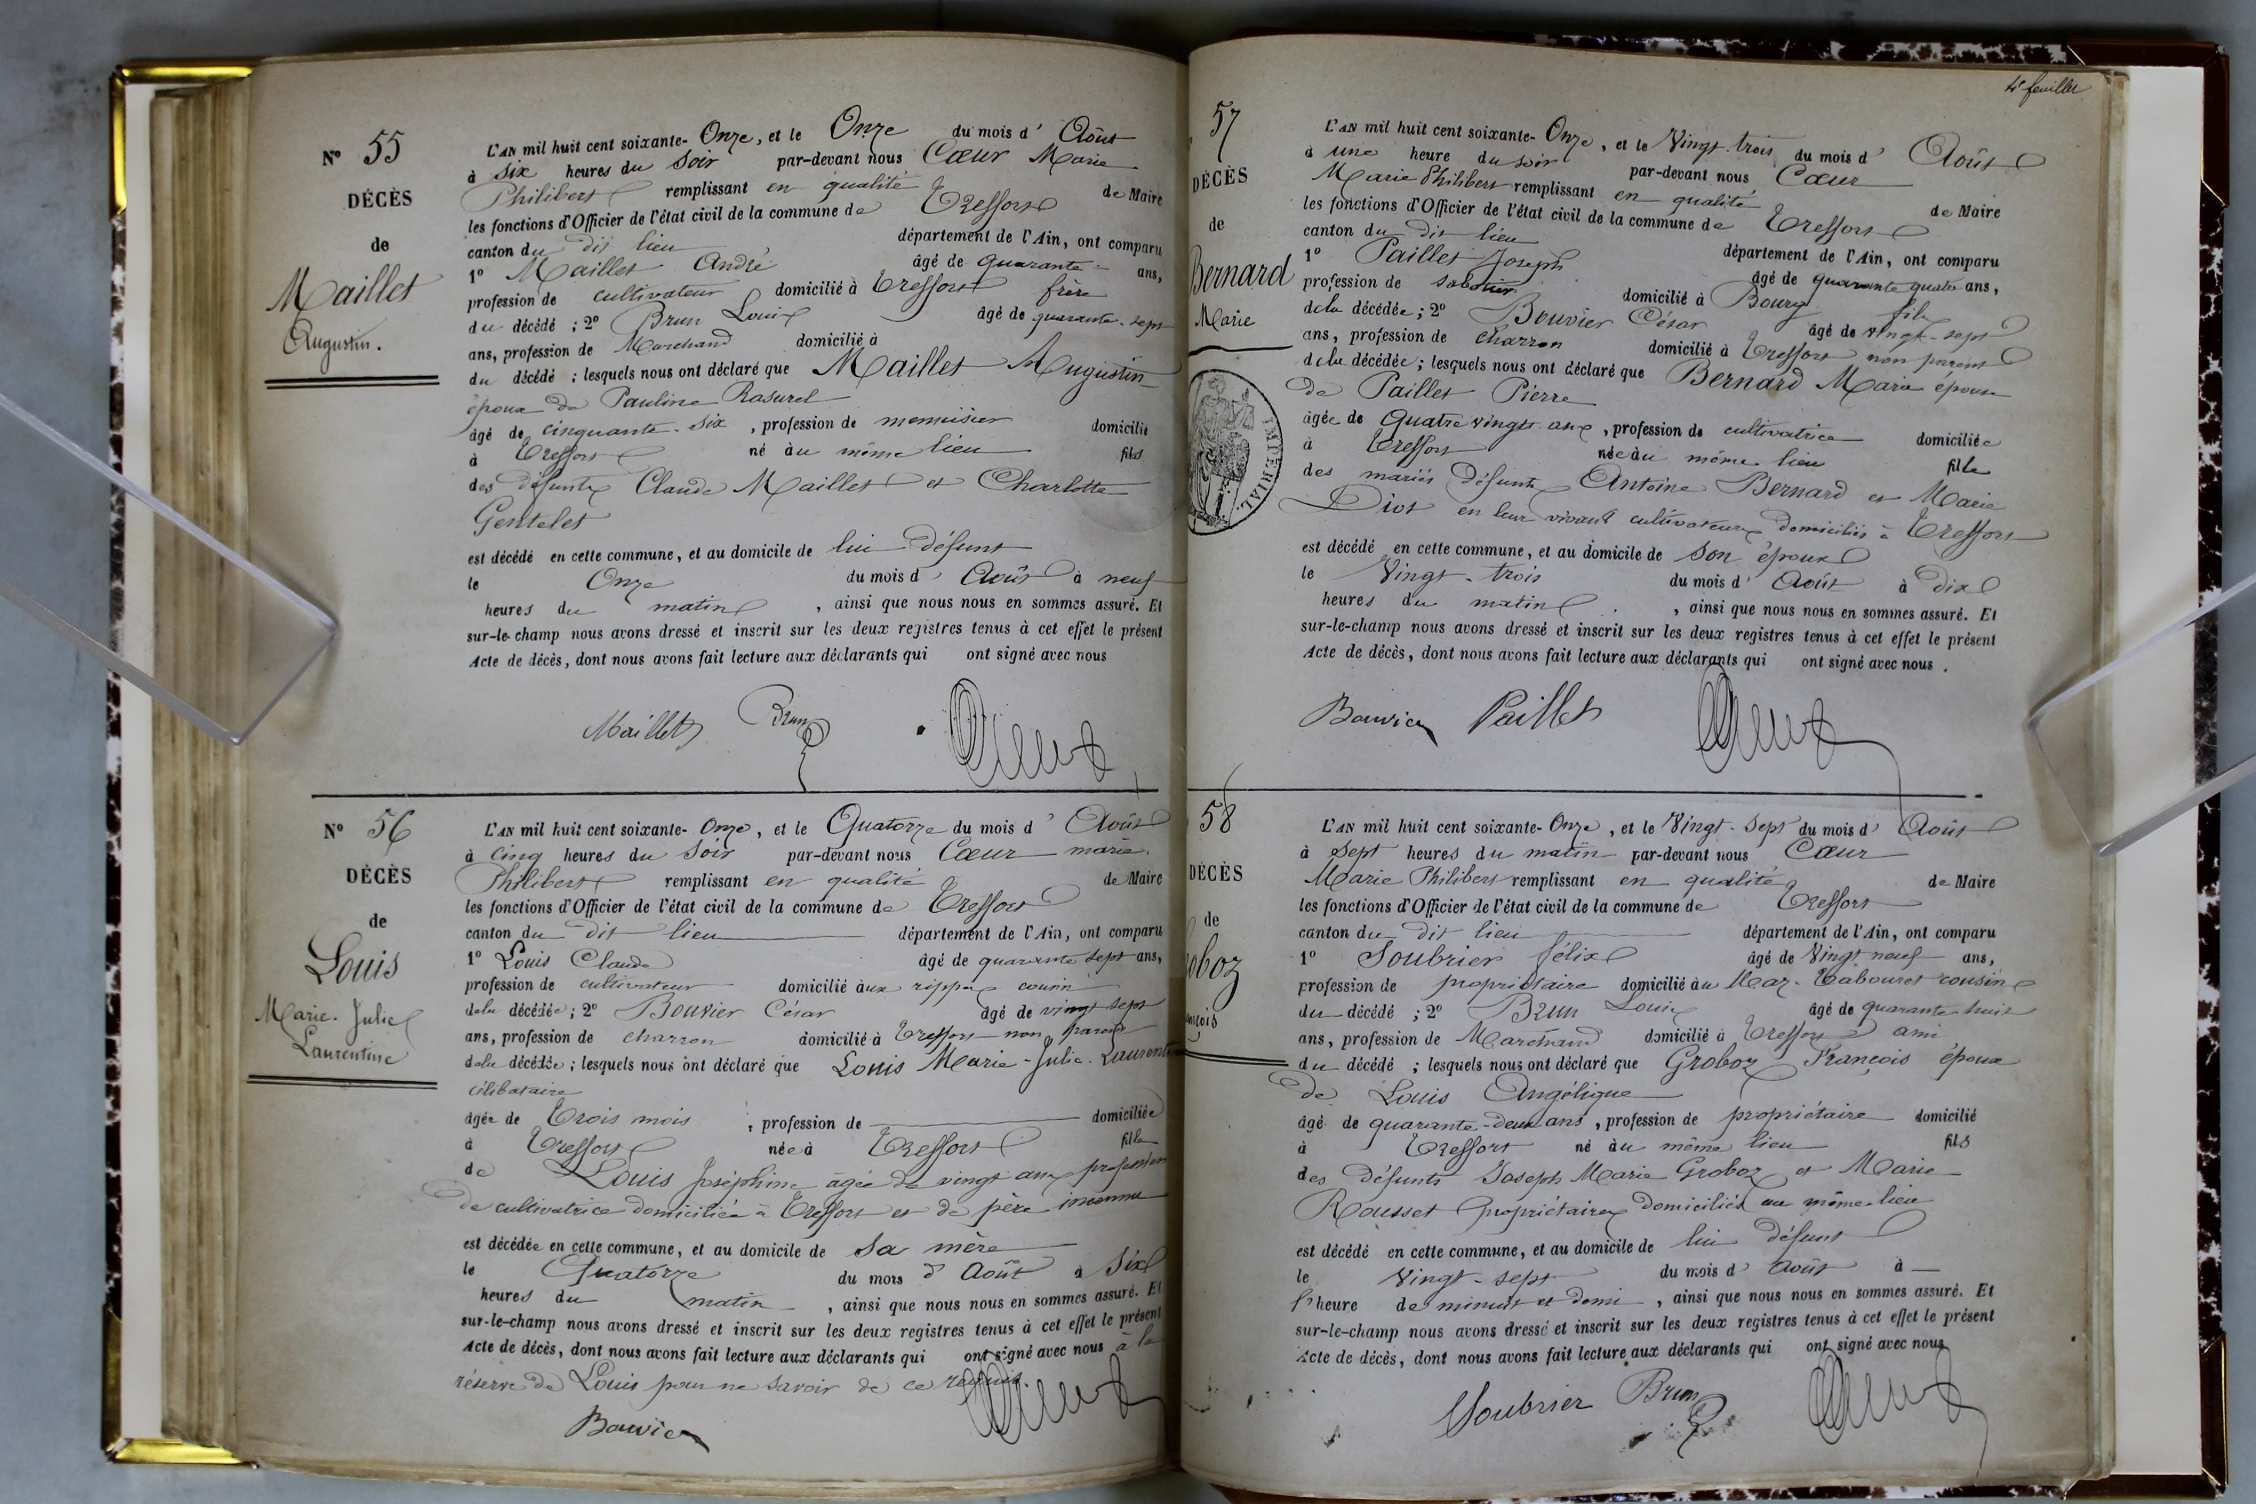 N° 55
DÉCÈS
de
Maillet
Augustin.
L'AN mil huit cent soixante- Onze, et le Onze du mois d' Août
à six heures du soir par-devant nous Cœur Marie
Philibert remplissant en qualité de Maire
les fonctions d'Officier de l'état civil de la commune de Treffort
canton du dit lieu département de l'Ain, ont comparu
1° Maillet André âgé de quarante ans,
profession de cultivateur domicilié à Treffort frère
du décédé ; 2° Brun Louis âgé de quarante-sept
ans, profession de Marchand domicilié à
du décédé ; lesquels nous ont déclaré que Maillet Augustin
époux de Pauline Rasurel
âgé de cinquante-six , profession de menuisier domicilié
à Treffort né au même lieu fils
des défunts Claude Maillet et Charlotte
Gentelet
est décédé en cette commune, et au domicile de lui défunt
le Onze du mois d' Août à neuf
heures du matin , ainsi que nous nous en sommes assuré. Et
sur-le-champ nous avons dressé et inscrit sur les deux registres tenus à cet effet le présent
Acte de décès, dont nous avons fait lecture aux déclarants qui ont signé avec nous
Maillet Brun
N° 56
DÉCÈS
de
Louis
Marie-Julie
Laurentine
L'AN mil huit cent soixante- Onze, et le Quatorze du mois d' Août
à cinq heures du soir par-devant nous Cœur marie
Philibert remplissant en qualité de Maire
les fonctions d'Officier de l'état civil de la commune de Treffort
canton du dit lieu département de l'Ain, ont comparu
1° Louis Claude âgé de quarante sept ans,
profession de cultivateur domicilié aux rippes cousin
de la décédée ; 2° Bouvier César âgé de vingt sept
ans, profession de charron domicilié à Treffort non parent
de la décédée ; lesquels nous ont déclaré que Louis Marie-Julie-Laurentine
célibataire
âgée de Trois mois , profession de domiciliée
à Treffort née à Treffort fille
de Louis Joséphine âgée de vingt ans profession
de cultivatrice domiciliée à Treffort et de père inconnu
est décédée en cette commune, et au domicile de sa mère
le Quatorze du mois d' Août à six
heures du matin , ainsi que nous nous en sommes assuré. Et
sur-le-champ nous avons dressé et inscrit sur les deux registres tenus à cet effet le présent
Acte de décès, dont nous avons fait lecture aux déclarants qui ont signé avec nous à la
réserve de Louis pour ne savoir de ce requis.
Bouvier
4e feuillet
57
DÉCÈS
de
Bernard
Marie
IMPÉRIAL.
L'AN mil huit cent soixante- Onze, et le Vingt-trois du mois d' Août
à une heure du soir par-devant nous Cœur
Marie Philibert remplissant en qualité de Maire
les fonctions d'Officier de l'état civil de la commune de Treffort
canton du dit lieu département de l'Ain, ont comparu
1° Paillet Joseph âgé de quarante quatre ans,
profession de sabotier domicilié à Bourg fils
de la décédée ; 2° Bouvier César âgé de vingt-sept
ans, profession de charron domicilié à Treffort non parent
de la décédée ; lesquels nous ont déclaré que Bernard Marie épouse
de Paillet Pierre
âgée de Quatre vingts ans , profession de cultivatrice domiciliée
à Treffort née au même lieu fille
des mariés défunts Antoine Bernard et Marie
Diot en leur vivant cultivateurs domiciliés à Treffort
est décédé en cette commune, et au domicile de son époux
le Vingt-trois du mois d' Août à dix
heures du matin , ainsi que nous nous en sommes assuré. Et
sur-le-champ nous avons dressé et inscrit sur les deux registres tenus à cet effet le présent
Acte de décès, dont nous avons fait lecture aux déclarants qui ont signé avec nous .
Bouvier Paillet
58
DÉCÈS
de
oboz
nçois
L'AN mil huit cent soixante- Onze, et le Vingt-sept du mois d' Août
à sept heures du matin par-devant nous Cœur
Marie Philibert remplissant en qualité de Maire
les fonctions d'Officier de l'état civil de la commune de Treffort
canton du dit lieu département de l'Ain, ont comparu
1° Soubrier félix âgé de Vingt neuf ans,
profession de propriétaire domicilié au Maz-Tabouret cousin
du décédé ; 2° Brun Louis âgé de quarante huit
ans, profession de Marchand domicilié à Treffort ami
du décédé ; lesquels nous ont déclaré que Groboz François époux
de Louis Angélique
âgé de quarante-deux ans , profession de propriétaire domicilié
à Treffort né au même lieu fils
des défunts Joseph Marie Groboz et Marie
Rousset propriétaires domiciliés au même lieu
est décédé en cette commune, et au domicile de lui défunt
le Vingt-sept du mois d' août à
l'heure de minuit et demi , ainsi que nous nous en sommes assuré. Et
sur-le-champ nous avons dressé et inscrit sur les deux registres tenus à cet effet le présent
Acte de décès, dont nous avons fait lecture aux déclarants qui ont signé avec nous
Soubrier Brun